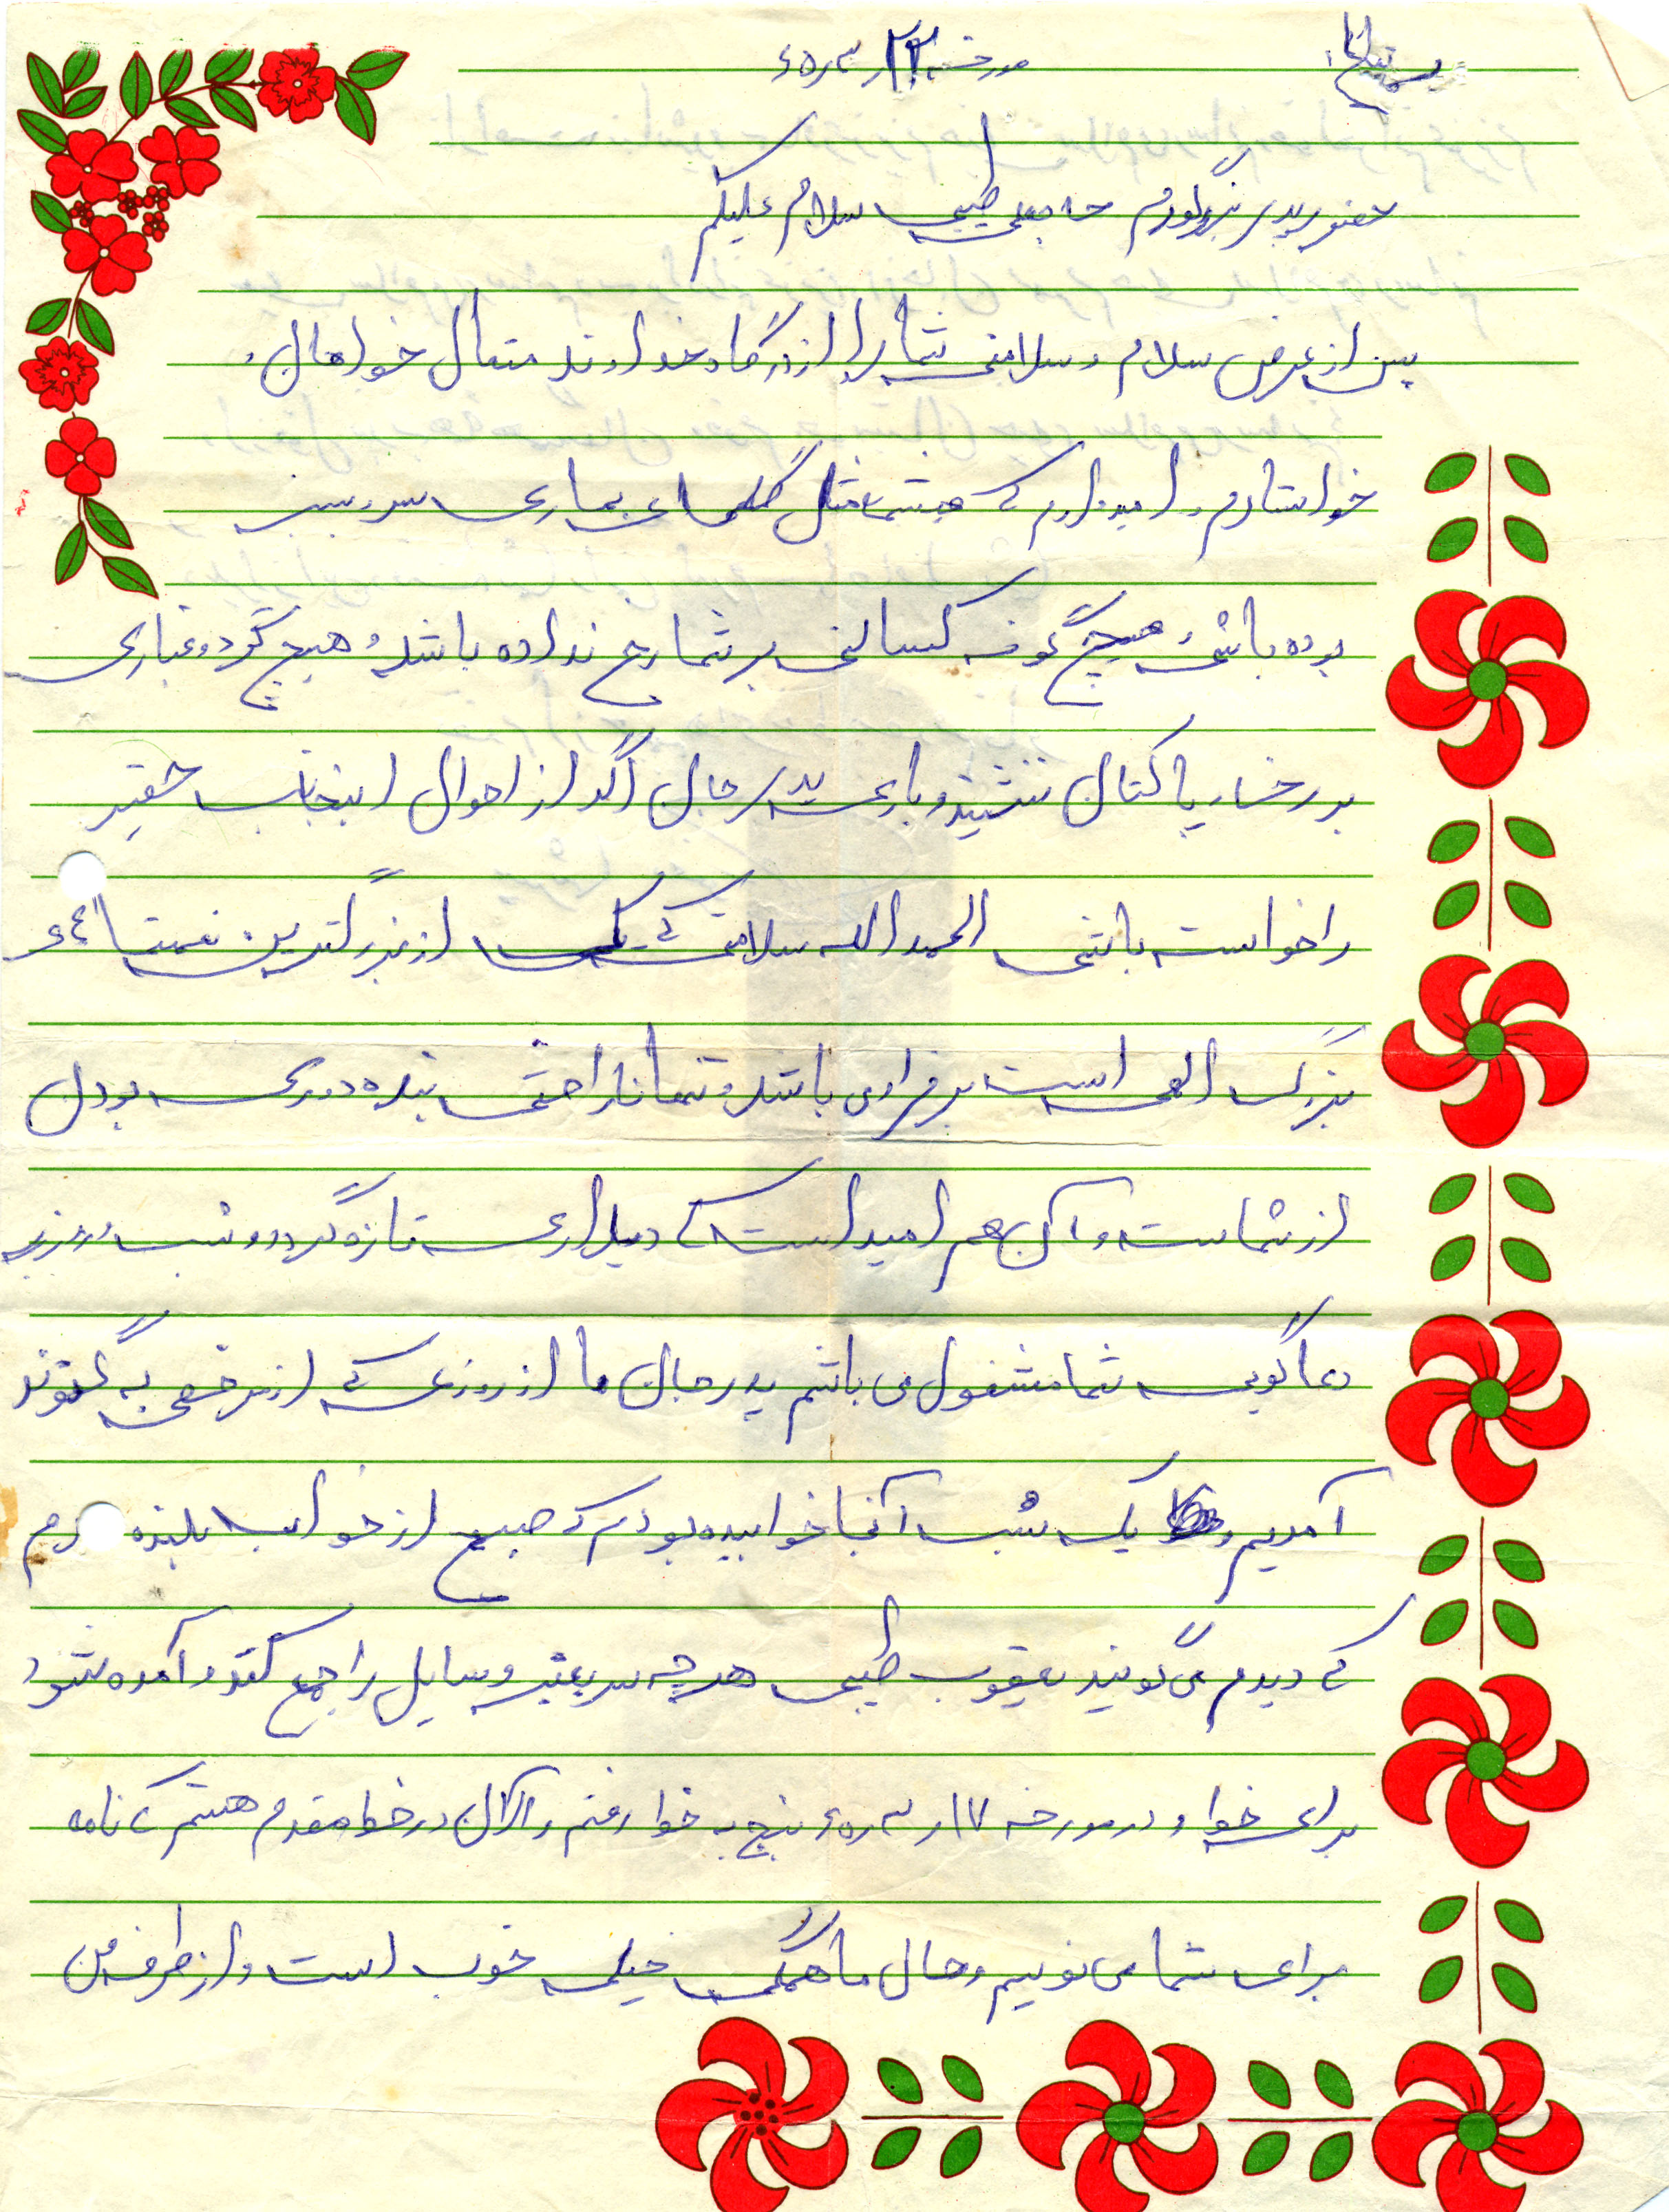 بسمه تعالی مورخه ۲۲ر۳ر۶۵
حضور پدر بزرگوارم حاجعلی طیبی سلام علیکم
پس از عرض سلام و سلامتی شما را از درگاه خداوند متعال خواهان و
خواستارم و امیدوارم که همیشه مثل گلهای بهاری سرسبز
بوده باشی و هیچ گونه کسالتی بر شما رخ نداده باشد و هیچ گرد و غباری
بر رخسار پاکتان ننشیند و باری پدر جان اگر از احوال اینجانب حقیر
را خواسته باشی الحمد الله سلامتی که یکی از بزرگترین نعمتهای
بزرگ الهی است برقرار می باشد و تنها ناراحتی بنده دوری بودن
از شماست و آن هم امید است که دیداری تازه گردد و شب و روز به
دعاگویی شما مشغول می باشم پدر جان ما از روزی که از مرخصی به گتوند
آمدیم و یک شب آنجا خوابیده بودم که صبح از خواب بلند شدم
که دیدم می گویند یعقوب طیبی هر چه سریعتر وسایل را جمع کند و آمده شود
برای خط و در مورخه ۱۷ر۳ر۶۵ پنج به خط رفتم و الان در خط مقدم هستم که نامه
برای شما می نویسم و حال ما همگی خیلی خوب است و از طرف من